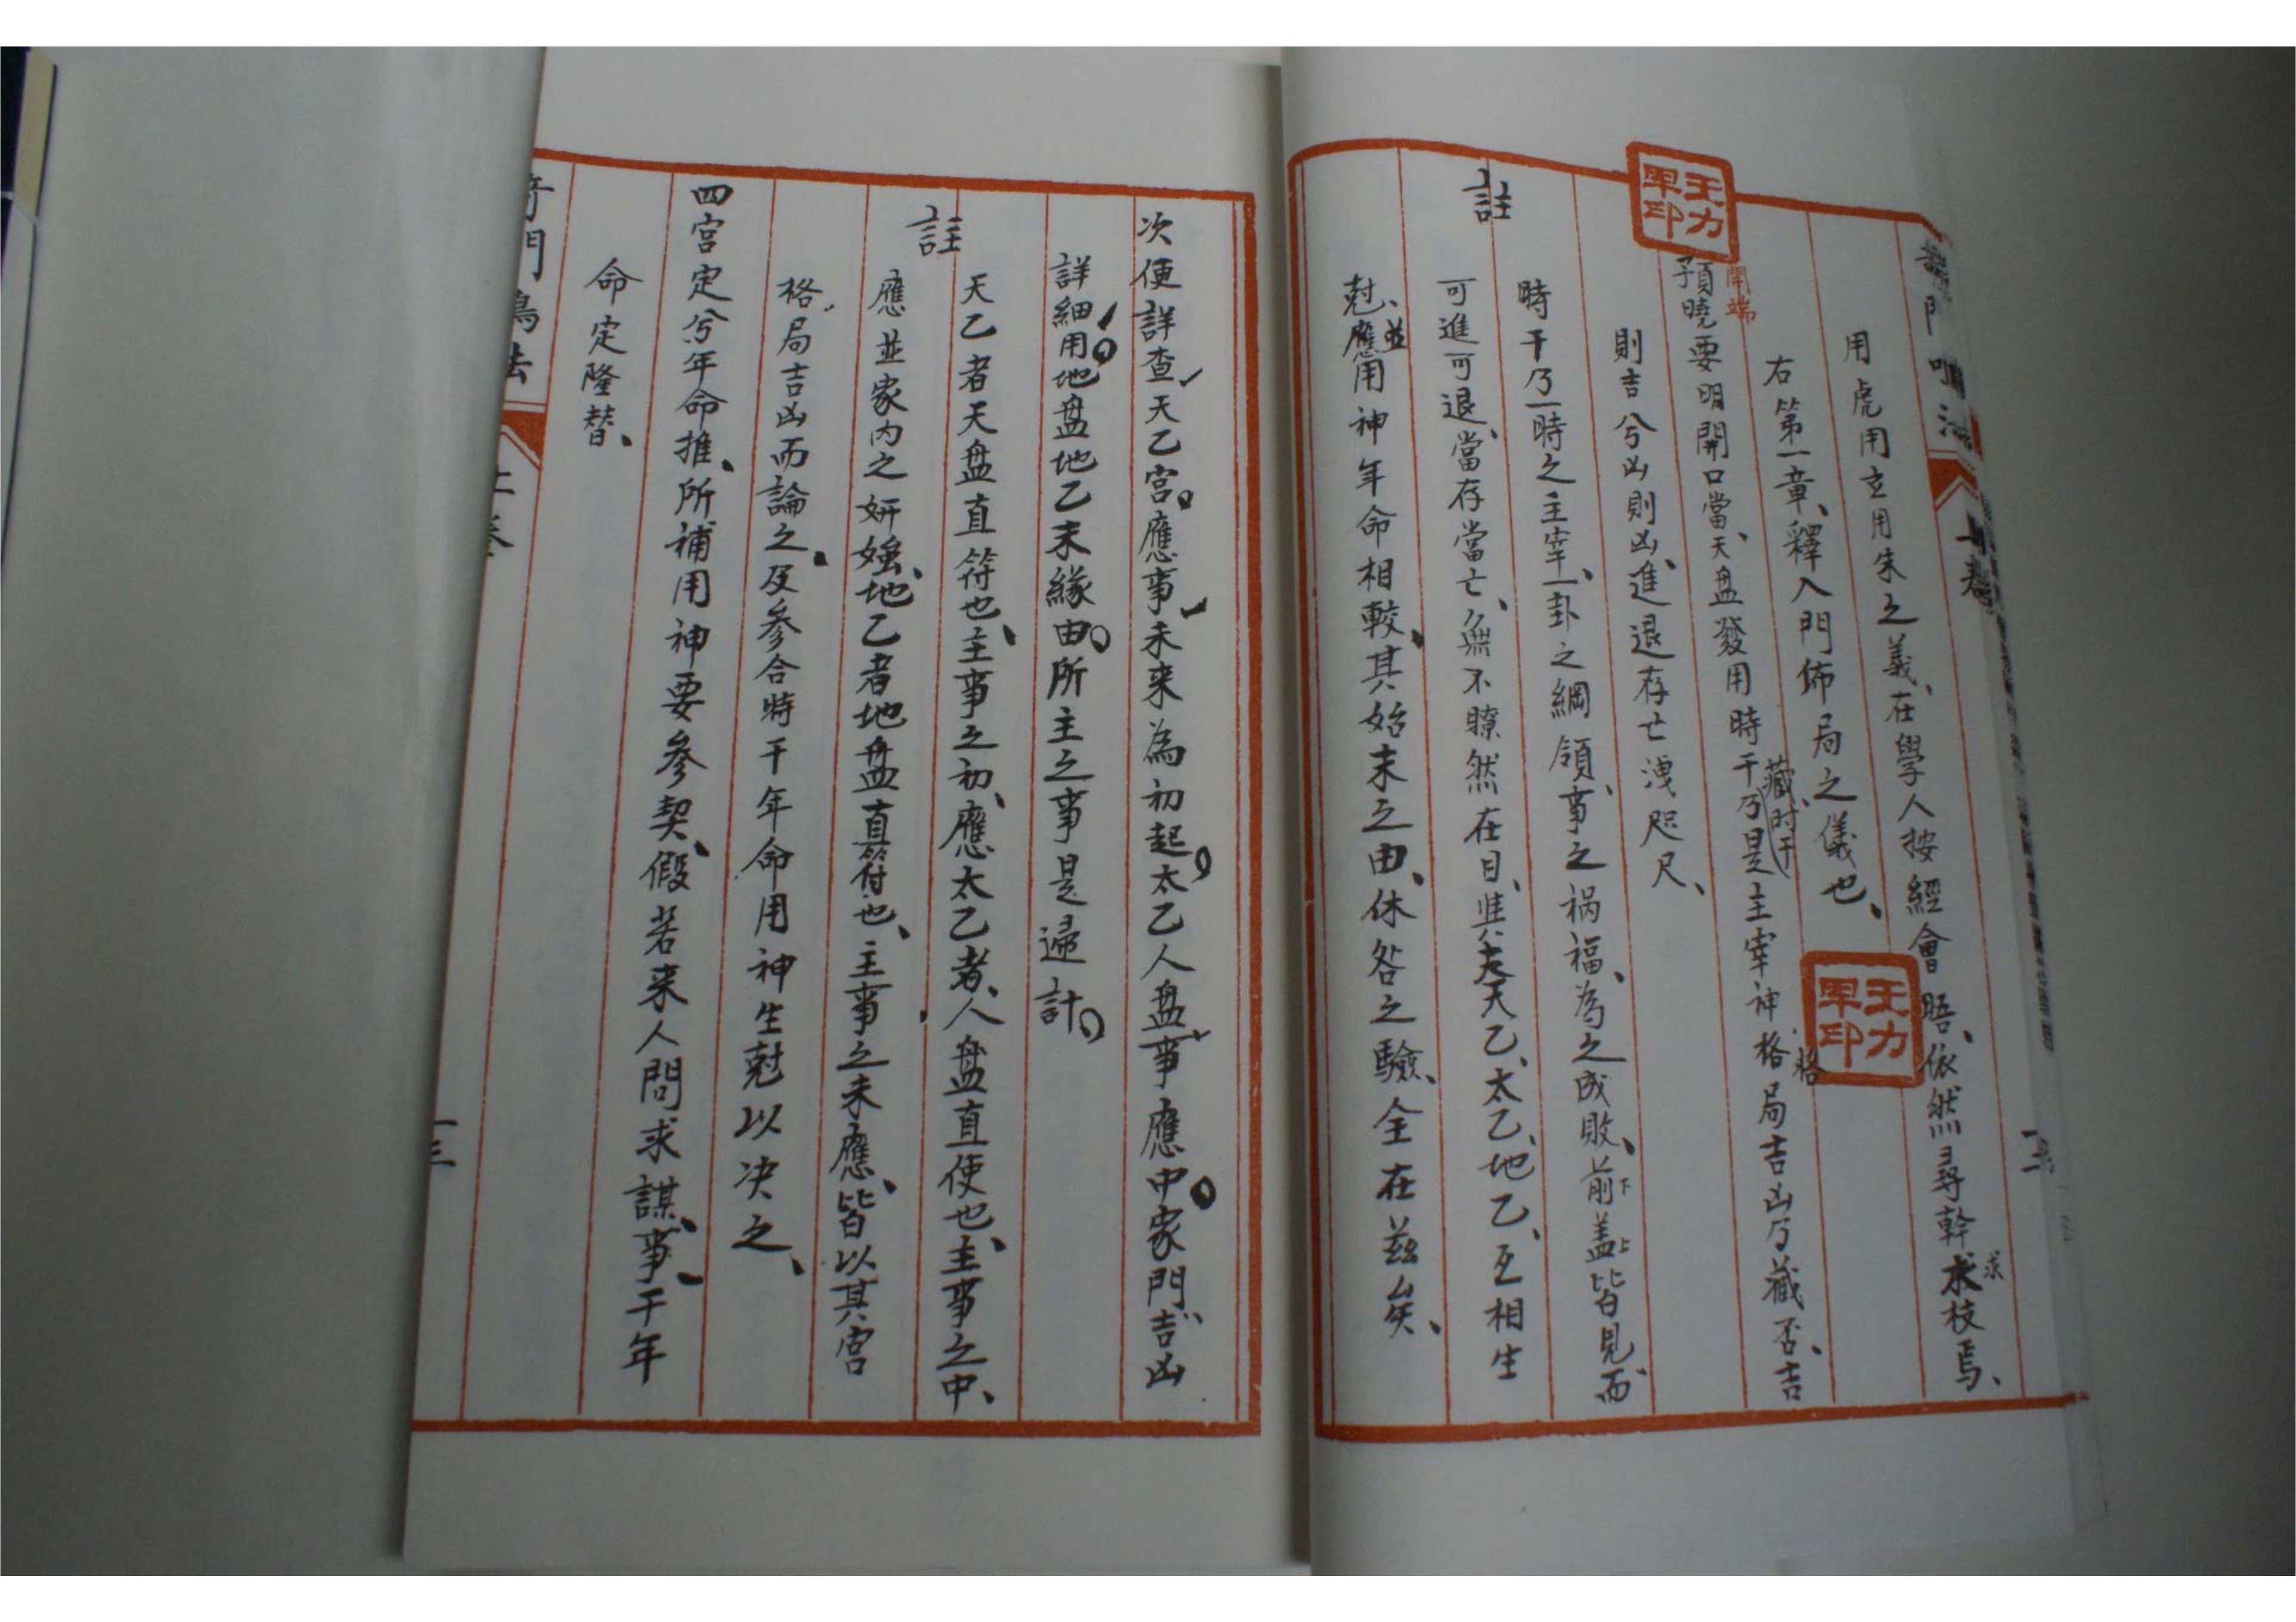 用虎用玄用朱之義、在學人按經會晤、依然尋幹求枝焉、
求
右第一章、釋入門佈局之儀也、
王力軍印
開端
預曉要明開口當、天盘發用時干乃是主宰神格局吉凶乃藏否、吉
藏时干
格
王力軍印
則吉兮凶則凶、進退存亡洩咫尺、
註
時干乃一時之主宰、一卦之綱領、事之禍福、為之成敗、前盖皆見、而
下
上
可進可退、當存當亡、無不瞭然在目、其天乙、太乙、地乙、互相生
尅、並應用神年命相較、其始末之由、休咎之驗、全在茲矣、
次便詳查天乙宮。應事未来為初起。太乙人盘事應中。家門吉凶
詳細用。地盘地乙末緣由。所主之事是遞計。
註
天乙者天盘直符也、主事之初、應太乙者、人盘直使也、主事之中、
應並家内之妍媸、地乙者地盘直符也、主事之末應、皆以其宮
格、局吉凶而論之、及参合時干年命用神生尅以决之、
四宮定兮年命推、所補用神要参契、假若来人問求謀、事干年
命定隆替、
奇門鳴法
上卷
十三